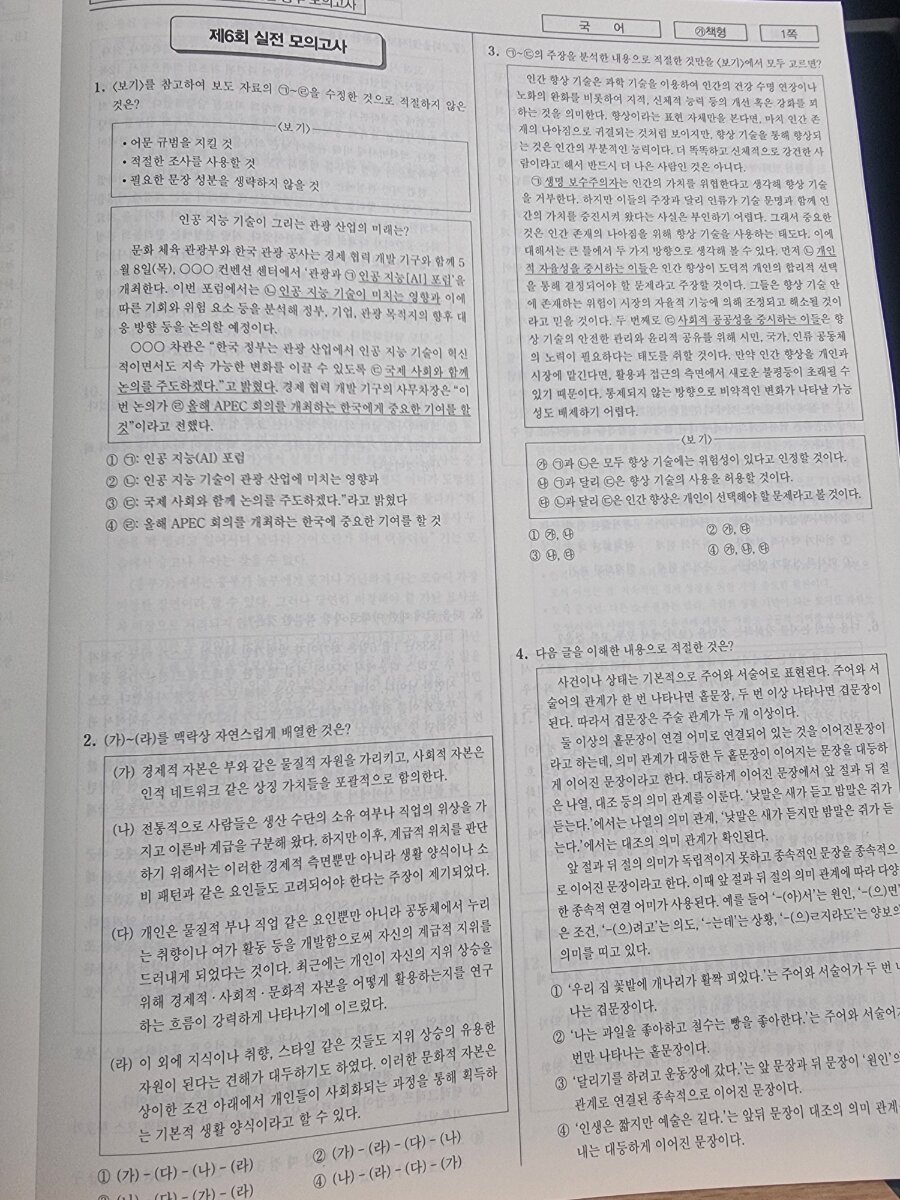 모의고사
국 어
㉮책형
1쪽
제6회 실전 모의고사
1. 〈보기〉를 참고하여 보도 자료의 ㉠~㉣을 수정한 것으로 적절하지 않은
것은?
〈보 기〉
• 어문 규범을 지킬 것
• 적절한 조사를 사용할 것
• 필요한 문장 성분을 생략하지 않을 것
인공 지능 기술이 그리는 관광 산업의 미래는?
문화 체육 관광부와 한국 관광 공사는 경제 협력 개발 기구와 함께 5
월 8일(목), ○○○ 컨벤션 센터에서 ‘관광과 ㉠ 인공 지능[AI] 포럼’을
개최한다. 이번 포럼에서는 ㉡ 인공 지능 기술이 미치는 영향과 이에
따른 기회와 위험 요소 등을 분석해 정부, 기업, 관광 목적지의 향후 대
응 방향 등을 논의할 예정이다.
○○○ 차관은 “한국 정부는 관광 산업에서 인공 지능 기술이 혁신
적이면서도 지속 가능한 변화를 이끌 수 있도록 ㉢ 국제 사회와 함께
논의를 주도하겠다.”고 밝혔다. 경제 협력 개발 기구의 사무차장은 “이
번 논의가 ㉣ 올해 APEC 회의를 개최하는 한국에게 중요한 기여를 할
것”이라고 전했다.
① ㉠: 인공 지능(AI) 포럼
② ㉡: 인공 지능 기술이 관광 산업에 미치는 영향과
③ ㉢: 국제 사회와 함께 논의를 주도하겠다.”라고 밝혔다
④ ㉣: 올해 APEC 회의를 개최하는 한국에 중요한 기여를 할 것
2. (가)~(라)를 맥락상 자연스럽게 배열한 것은?
(가) 경제적 자본은 부와 같은 물질적 자원을 가리키고, 사회적 자본은
인적 네트워크 같은 상징 가치들을 포괄적으로 함의한다.
(나) 전통적으로 사람들은 생산 수단의 소유 여부나 직업의 위상을 가
지고 이른바 계급을 구분해 왔다. 하지만 이후, 계급적 위치를 판단
하기 위해서는 이러한 경제적 측면뿐만 아니라 생활 양식이나 소
비 패턴과 같은 요인들도 고려되어야 한다는 주장이 제기되었다.
(다) 개인은 물질적 부나 직업 같은 요인뿐만 아니라 공동체에서 누리
는 취향이나 여가 활동 등을 개발함으로써 자신의 계급적 지위를
드러내게 되었다는 것이다. 최근에는 개인이 자신의 지위 상승을
위해 경제적·사회적·문화적 자본을 어떻게 활용하는지를 연구
하는 흐름이 강력하게 나타나기에 이르렀다.
(라) 이 외에 지식이나 취향, 스타일 같은 것들도 지위 상승의 유용한
자원이 된다는 견해가 대두하기도 하였다. 이러한 문화적 자본은
상이한 조건 아래에서 개인들이 사회화되는 과정을 통해 획득하
는 기본적 생활 양식이라고 할 수 있다.
① (가) - (다) - (나) - (라)
② (가) - (라) - (다) - (나)
③ (나) - (다) - (가) - (라)
④ (나) - (라) - (다) - (가)
3. ㉠~㉢의 주장을 분석한 내용으로 적절한 것만을 〈보기〉에서 모두 고르면?
인간 향상 기술은 과학 기술을 이용하여 인간의 건강 수명 연장이나
노화의 완화를 비롯하여 지적, 신체적 능력 등의 개선 혹은 강화를 꾀
하는 것을 의미한다. 향상이라는 표현 자체만을 본다면, 마치 인간 존
재의 나아짐으로 귀결되는 것처럼 보이지만, 향상 기술을 통해 향상되
는 것은 인간의 부분적인 능력이다. 더 똑똑하고 신체적으로 강건한 사
람이라고 해서 반드시 더 나은 사람인 것은 아니다.
㉠ 생명 보수주의자는 인간의 가치를 위협한다고 생각해 향상 기술
을 거부한다. 하지만 이들의 주장과 달리 인류가 기술 문명과 함께 인
간의 가치를 증진시켜 왔다는 사실은 부인하기 어렵다. 그래서 중요한
것은 인간 존재의 나아짐을 위해 향상 기술을 사용하는 태도다. 이에
대해서는 큰 틀에서 두 가지 방향으로 생각해 볼 수 있다. 먼저 ㉡ 개인
적 자율성을 중시하는 이들은 인간 향상이 도덕적 개인의 합리적 선택
을 통해 결정되어야 할 문제라고 주장할 것이다. 그들은 향상 기술 안
에 존재하는 위험이 시장의 자율적 기능에 의해 조정되고 해소될 것이
라고 믿을 것이다. 두 번째로 ㉢ 사회적 공공성을 중시하는 이들은 향
상 기술의 안전한 관리와 윤리적 공유를 위해 시민, 국가, 인류 공동체
의 노력이 필요하다는 태도를 취할 것이다. 만약 인간 향상을 개인과
시장에 맡긴다면, 활용과 접근의 측면에서 새로운 불평등이 초래될 수
있기 때문이다. 통제되지 않는 방향으로 비약적인 변화가 나타날 가능
성도 배제하기 어렵다.
〈보 기〉
㉮ ㉠과 ㉡은 모두 향상 기술에는 위험성이 있다고 인정할 것이다.
㉯ ㉠과 달리 ㉢은 향상 기술의 사용을 허용할 것이다.
㉰ ㉡과 달리 ㉢은 인간 향상은 개인이 선택해야 할 문제라고 볼 것이다.
① ㉮, ㉯
② ㉮, ㉰
③ ㉯, ㉰
④ ㉮, ㉯, ㉰
4. 다음 글을 이해한 내용으로 적절한 것은?
사건이나 상태는 기본적으로 주어와 서술어로 표현된다. 주어와 서
술어의 관계가 한 번 나타나면 홑문장, 두 번 이상 나타나면 겹문장이
된다. 따라서 겹문장은 주술 관계가 두 개 이상이다.
둘 이상의 홑문장이 연결 어미로 연결되어 있는 것을 이어진문장이
라고 하는데, 의미 관계가 대등한 두 홑문장이 이어지는 문장을 대등하
게 이어진 문장이라고 한다. 대등하게 이어진 문장에서 앞 절과 뒤 절
은 나열, 대조 등의 의미 관계를 이룬다. ‘낮말은 새가 듣고 밤말은 쥐가
듣는다.’에서는 나열의 의미 관계, ‘낮말은 새가 듣지만 밤말은 쥐가 듣
는다.’에서는 대조의 의미 관계가 확인된다.
앞 절과 뒤 절의 의미가 독립적이지 못하고 종속적인 문장을 종속적으
로 이어진 문장이라고 한다. 이때 앞 절과 뒤 절의 의미 관계에 따라 다양
한 종속적 연결 어미가 사용된다. 예를 들어 ‘-(아)서’는 원인, ‘-(으)면’
은 조건, ‘-(으)려고’는 의도, ‘-는데’는 상황, ‘-(으)ㄹ지라도’는 양보의
의미를 띠고 있다.
① ‘우리 집 꽃밭에 개나리가 활짝 피었다.’는 주어와 서술어가 두 번 나
나는 겹문장이다.
② ‘나는 과일을 좋아하고 철수는 빵을 좋아한다.’는 주어와 서술어가
번만 나타나는 홑문장이다.
③ ‘달리기를 하려고 운동장에 갔다.’는 앞 문장과 뒤 문장이 ‘원인’의
관계로 연결된 종속적으로 이어진 문장이다.
④ ‘인생은 짧지만 예술은 길다.’는 앞뒤 문장이 대조의 의미 관계
내는 대등하게 이어진 문장이다.